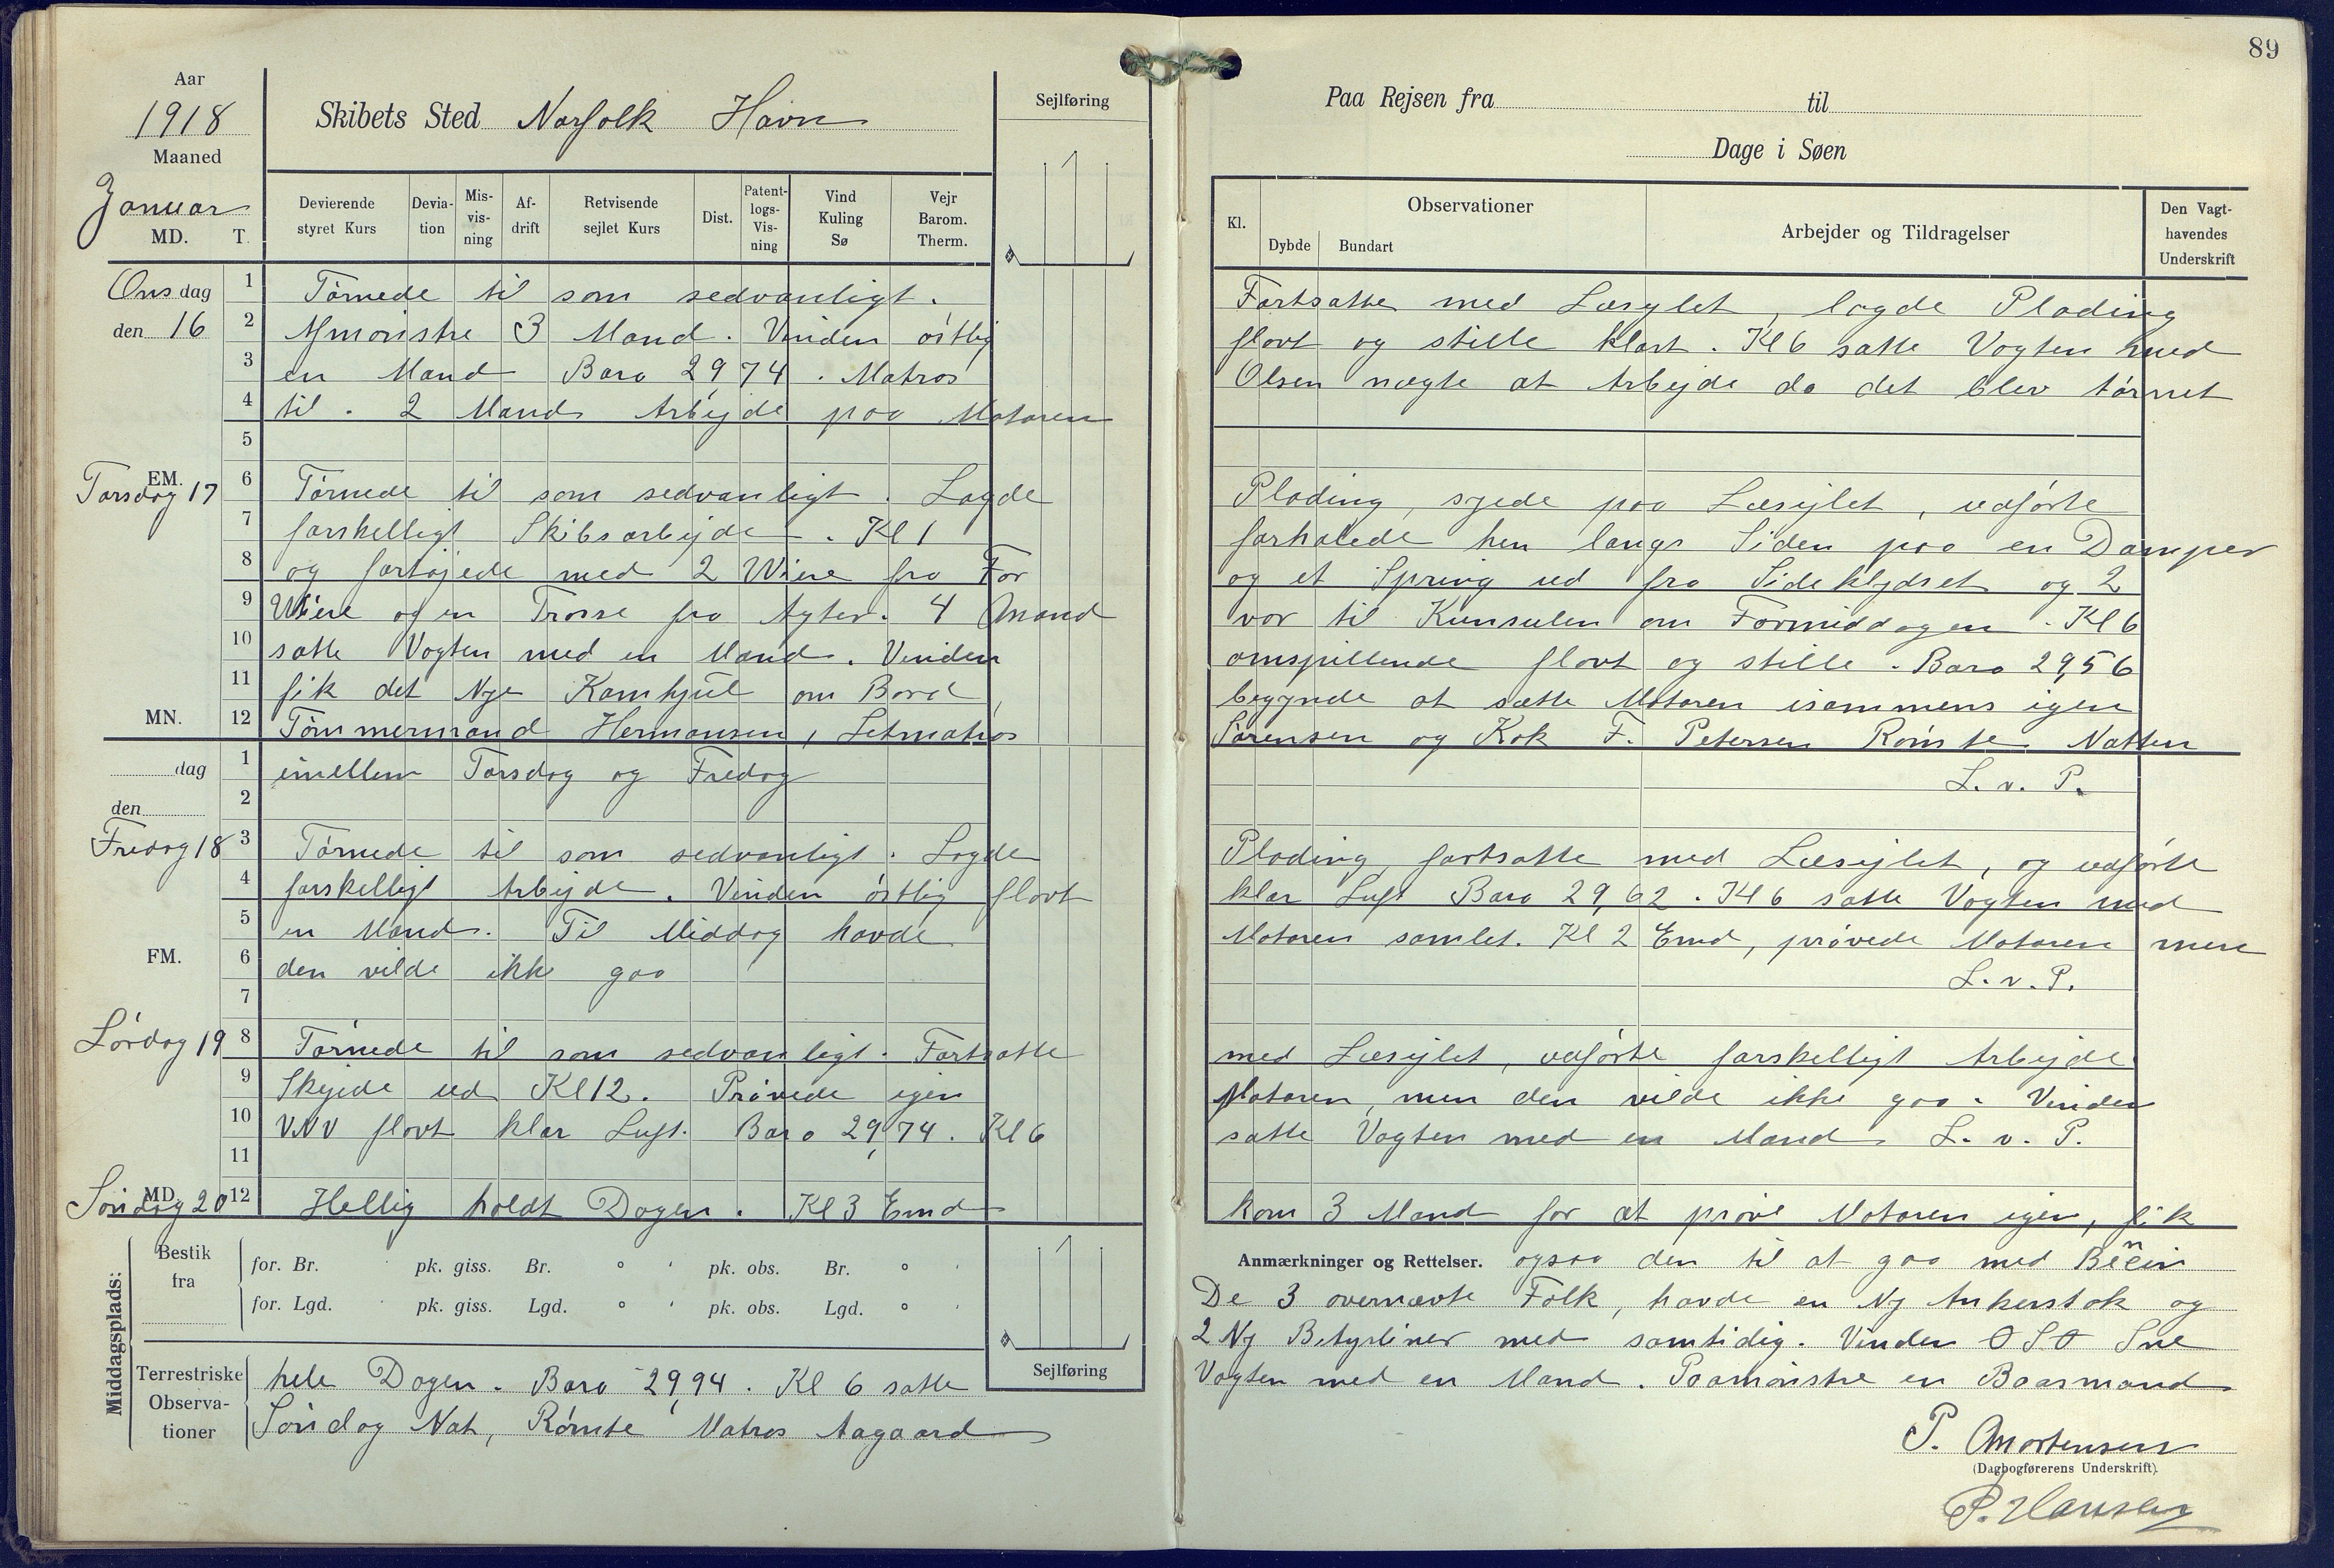 89
Aar
1918
Maaned
Januar
MD. T.
Skibets Sted Norfolk Havn
Sejlføring
Devierende styret Kurs
Devia-tion
Mis-vis-ning
Af-drift
Retvisende sejlet Kurs
Dist.
Patent-logs-Vis-ning
Vind Kuling Sø
Vejr Barom. Therm.
Paa Rejsen fra til
Dage i Søen
Kl.
Observationer
Dybde Bundart
Arbejder og Tildragelser
Den Vagt-havendes Underskrift
Onsdag 1 Törnede til som sedvanligt. Fortsatte med Læsejlet, lagde Plading
den 16 2 Afmönstre 3 Mand. Vinden östlig flovt og stille klart. Kl 6 satte Vagten med
3 en Mand Baro 29,74. Matros Olsen nægte at Arbejde da det blev törnet
4 til. 2 Mand Arbejde paa Motoren
5
EM.
Torsdag 17 6 Törnede til som sedvanligt. Lagde Plading, syede paa Læsejlet, udförte
7 forskelligt Skibsarbejde. Kl 1 forhalede hen langs Siden paa en Damper
8 og fortöjede med 2 Wire fra For og et Spring ud fra Sideklydset og 2
9 Wire og en Trosse fra Agter. 4 Mand var til Kunsulen om Formiddagen. Kl 6
10 satte Vagten med en Mand. Vinden omspillende flovt og stille. Baro 29,56
11 fik det Nye Kamhjul om Bord, begynde at sætte Motoren isammens igen
MN. 12 Tömmermand Hermansen, Letmatros Sörensen og Kok F. Petersen Römte Natten
dag 1 imellem Torsdag og Fredag L. v. P.
den 2
Fredag 18 3 Törnede til som sedvanligt. Lagde Plading, fortsatte med Læsejlet, og udförte
4 forskelligt Arbejde. Vinden östlig flovt klar Luft Baro 29,62. Kl 6 satte Vagten med
5 en Mand. Til Middag havde Motoren samlet. Kl 2 Emd, prövede Motoren men
FM. 6 den vilde ikke gaa L. v. P.
7
Lördag 19 8 Törnede til som sedvanligt. Fortsatte med Læsejlet, udförte forskelligt Arbejde
9 Skejede ud Kl 12. Prövede igen Motoren, men den vilde ikke gaa. Vinden
10 VNV flovt klar Luft. Baro 29,74. Kl 6 satte Vagten med en Mand L. v. P.
11
MD.
Söndag 20 12 Hellig holdt Dagen. Kl 3 Emd kom 3 Mand for at pröve Motoren igen, fik
Middagsplads:
Bestik fra
for. Br. pk. giss. Br. ° ' pk. obs. Br. ° '
for. Lgd. pk. giss. Lgd. ° ' pk. obs. Lgd. ° '
Anmærkninger og Rettelser. ogsaa den til at gaa med
De 3 overnævte Folk, havde en Ny Ankerstok og
2 Ny med samtidig. Vinden OSO Sne
Sejlføring
Terrestriske Observa-tioner
hele Dagen. Baro 29,94. Kl 6 satte Vagten med en Mand. Paamönstre en Baasmand
Söndag Nat, Römte Matros Aagaard
P. Mortensen
(Dagbogførerens Underskrift).
P. Hansen